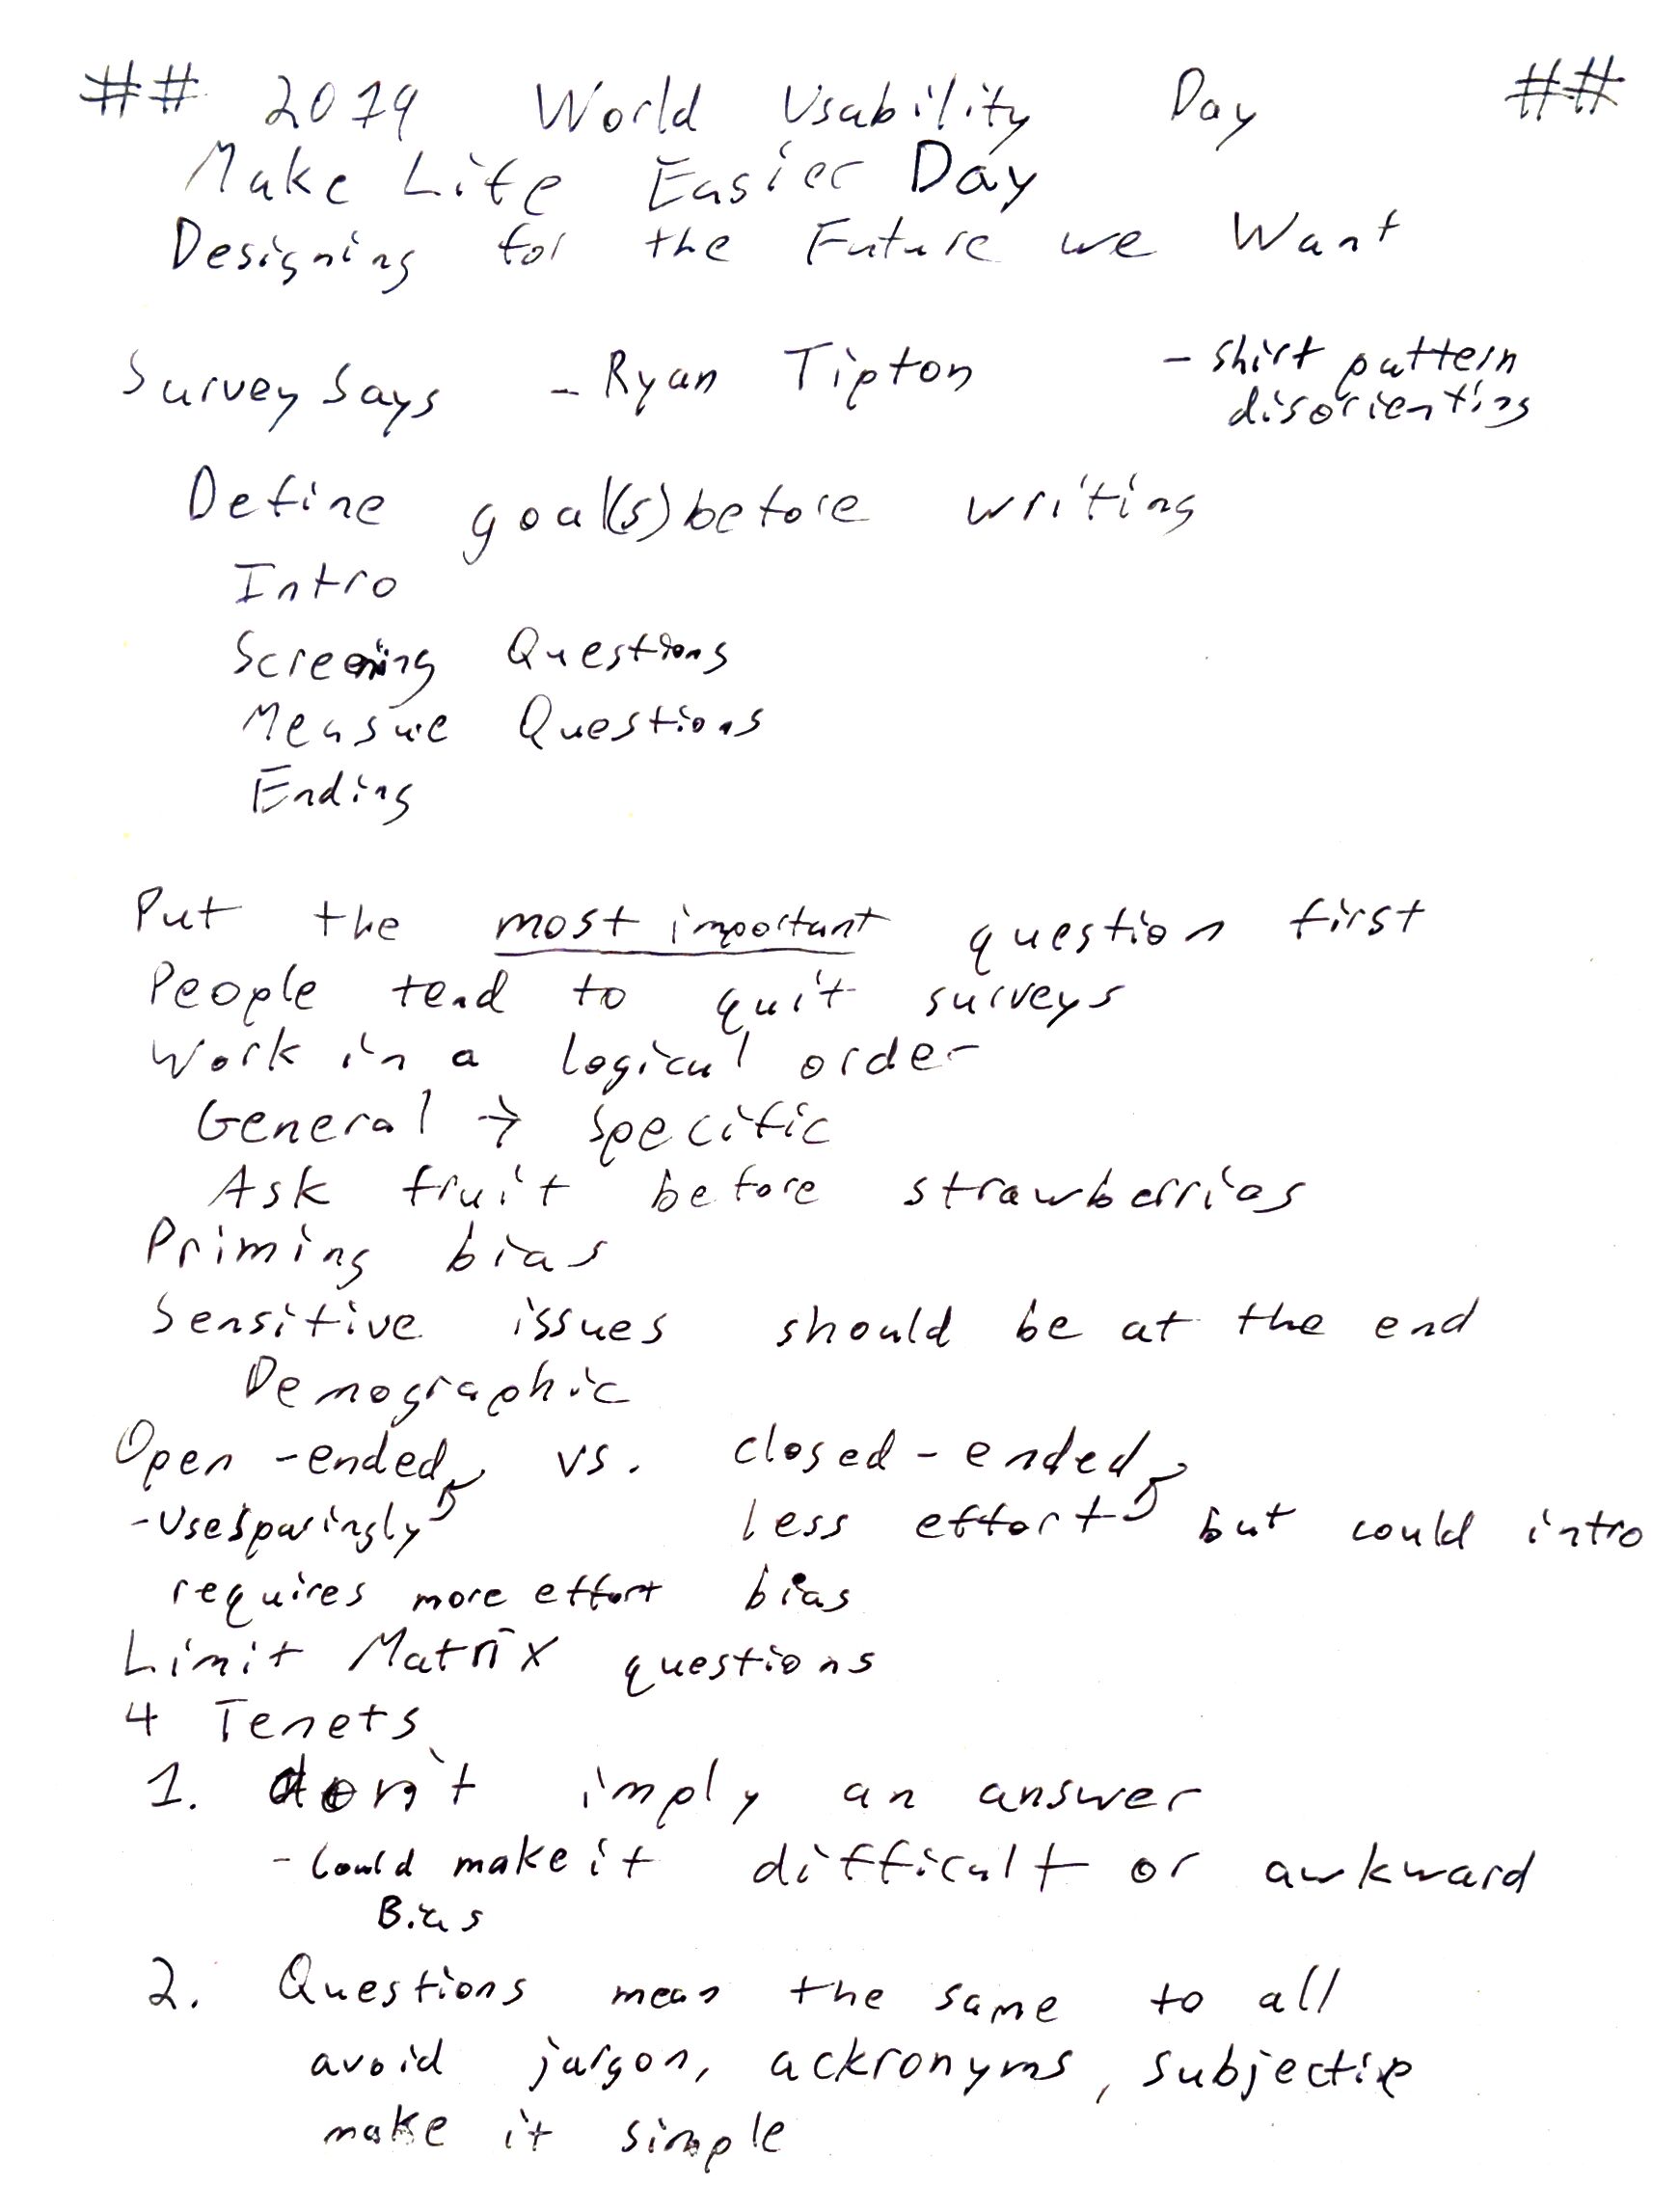 ## 2019 World Usability Day ##
Make Life Easier Day
Designing for the Future we Want
Survey Says - Ryan Tipton - shirt pattern
disorienting
Define goal(s) before writing
Intro
Screening Questions
Measure Questions
Ending
Put the most important question first
People tend to quit surveys
Work in a logical order
General → Specific
Ask fruit before strawberries
Priming bias
Sensitive issues should be at the end
Demographic
Open-ended vs. closed-ended
- Use sparingly less effort but could intro
requires more effort bias
Limit Matrix questions
4 Tenets
1. don't imply an answer
- Could make it difficult or awkward
Bias
2. Questions mean the same to all
avoid jargon, ackronyms, subjective
make it simple